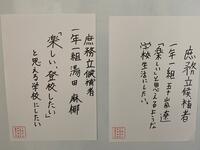 庶務立候補者
一年一組 五十嵐 蓮
「楽しい」と思えるような
学校生活にしたい。
庶務立候補者
一年一組 湯田 麻椰
「楽しい、登校したい」
と思える学校にしたい